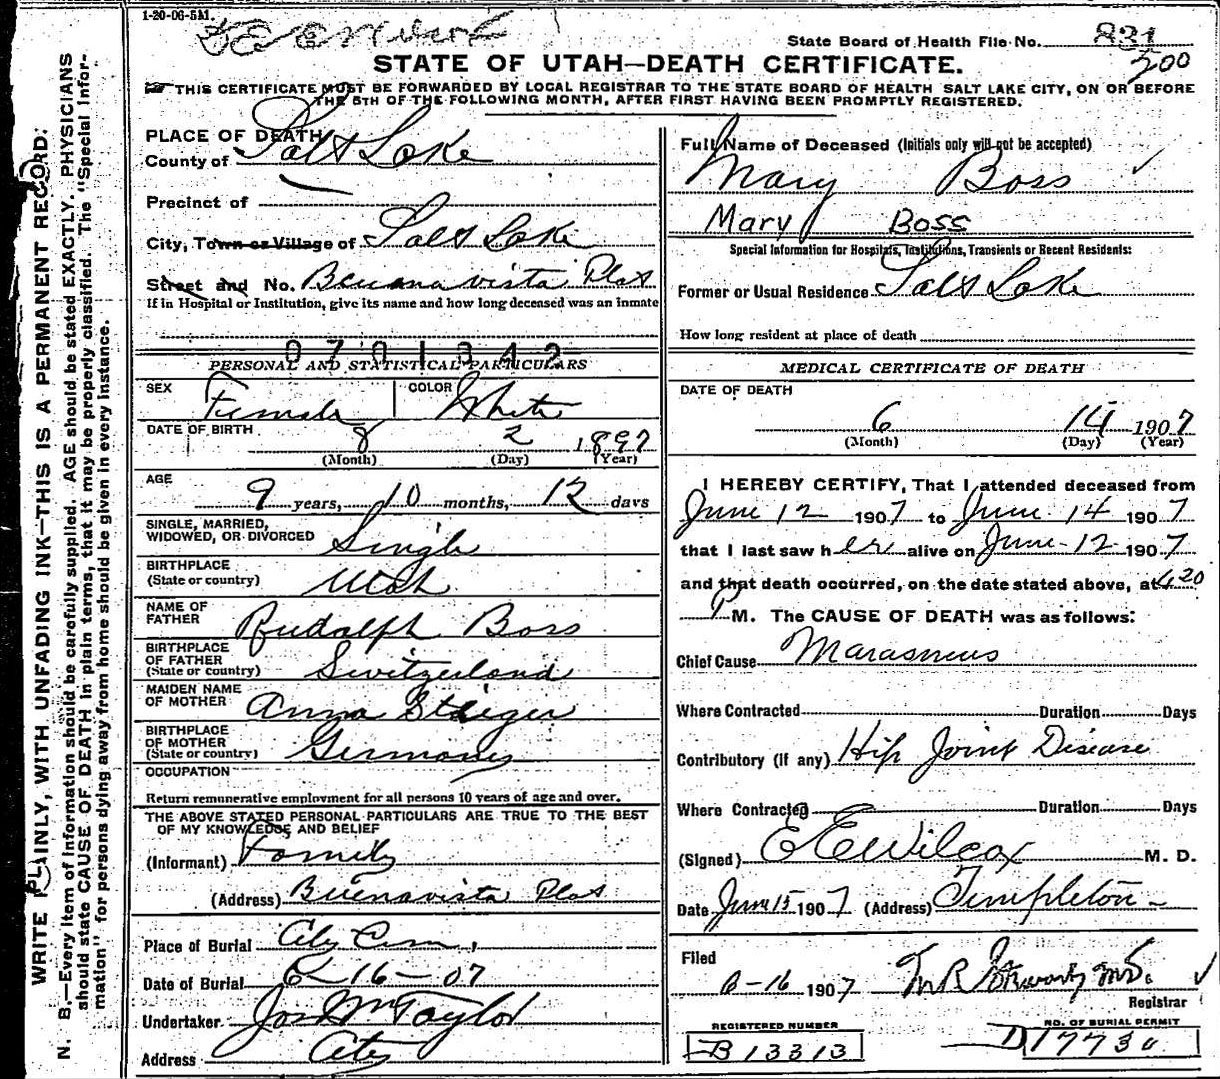 1-20-06-5M.
State Board of Health File No. 831
200
STATE OF UTAH—DEATH CERTIFICATE.
THIS CERTIFICATE MUST BE FORWARDED BY LOCAL REGISTRAR TO THE STATE BOARD OF HEALTH SALT LAKE CITY, ON OR BEFORE
THE 5TH OF THE FOLLOWING MONTH, AFTER FIRST HAVING BEEN PROMPTLY REGISTERED.
WRITE PLAINLY, WITH UNFADING INK—THIS IS A PERMANENT RECORD.
N. B.—Every item of information should be carefully supplied. AGE should be stated EXACTLY. PHYSICIANS
should state CAUSE OF DEATH in plain terms, that it may be properly classified. The "Special Infor-
mation" for persons dying away from home should be given in every instance.
PLACE OF DEATH
County of Salt Lake
Precinct of
City, Town or Village of Salt Lake
Street and No. Buena vista Plat
If in Hospital or Institution, give its name and how long deceased was an inmate
0701342
PERSONAL AND STATISTICAL PARTICULARS
SEX Female COLOR White
DATE OF BIRTH 8 2 1897
(Month) (Day) (Year)
AGE
9 years, 10 months, 12 days
SINGLE, MARRIED,
WIDOWED, OR DIVORCED Single
BIRTHPLACE
(State or country) Utah
NAME OF
FATHER Rudolph Boss
BIRTHPLACE
OF FATHER
(State or country) Switzerland
MAIDEN NAME
OF MOTHER Anna Steiger
BIRTHPLACE
OF MOTHER
(State or country) Germany
OCCUPATION
Return remunerative employment for all persons 10 years of age and over.
THE ABOVE STATED PERSONAL PARTICULARS ARE TRUE TO THE BEST
OF MY KNOWLEDGE AND BELIEF
(Informant) Family
(Address) Buenavista Plat
Place of Burial City Cem,
Date of Burial 6-16-07
Undertaker Jos Wm Taylor
Address City
Full Name of Deceased (Initials only will not be accepted)
Mary Boss
Mary Boss
Special Information for Hospitals, Institutions, Transients or Recent Residents:
Former or Usual Residence Salt Lake
How long resident at place of death
MEDICAL CERTIFICATE OF DEATH
DATE OF DEATH
6 14 1907
(Month) (Day) (Year)
I HEREBY CERTIFY, That I attended deceased from
June 12 1907 to June 14 1907
that I last saw her alive on June-12 1907
and that death occurred, on the date stated above, at 4 20
P M. The CAUSE OF DEATH was as follows:
Chief Cause Marasmus
Where Contracted Duration Days
Contributory (if any) Hip Joint Disease
Where Contracted Duration Days
(Signed) E E Wilcox M. D.
Date June 15 1907 (Address) Templeton -
Filed
6-16 1907 M.D.
Registrar
REGISTERED NUMBER
B 13313
NO. OF BURIAL PERMIT
D17730